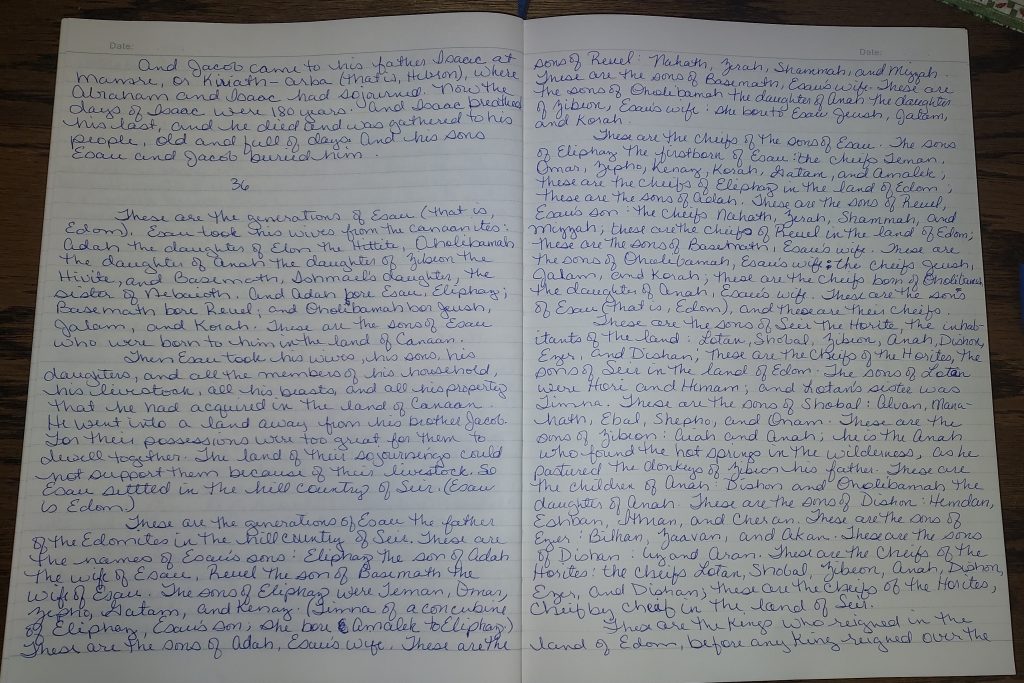 Date:
And Jacob came to his father Isaac at
Mamre, or Kiriath-arba (that is, Hebron), where
Abraham and Isaac had sojourned. Now the
days of Isaac were 180 years. And Isaac breathed
his last, and he died and was gathered to his
people, old and full of days. And his sons
Esau and Jacob buried him.
36
These are the generations of Esau (that is,
Edom). Esau took his wives from the Canaanites:
Adah the daughter of Elon the Hittite, Oholibamah
the daughter of Anah the daughter of Zibeon the
Hivite, and Basemath, Ishmael's daughter, the
sister of Nebaioth. And Adah bore Esau, Eliphaz;
Basemath bore Reuel; and Oholibamah bor Jeush,
Jalam, and Korah. These are the sons of Esau
who were born to him in the land of Canaan.
Then Esau took his wives, his sons, his
daughters, and all the members of his household,
his livestock, all his beasts, and all his property
that he had acquired in the land of Canaan.
He went into a land away from his brother Jacob.
For their possessions were too great for them to
dwell together. The land of their sojournings could
not support them because of their livestock. So
Esau settled in the hill country of Seir. (Esau
is Edom.)
These are the generations of Esau the father
of the Edomites in the hill country of Seir. These are
the names of Esau's sons: Eliphaz the son of Adah
the wife of Esau, Reuel the son of Basemath the
wife of Esau. The sons of Eliphaz were Teman, Omar,
Zepho, Gatam, and Kenaz. (Timna of a concubine
of Eliphaz, Esau's son; she bore Amalek to Eliphaz.)
These are the sons of Adah, Esau's wife. These are the
Date:
sons of Reuel: Nahath, Zerah, Shammah, and Mizzah.
These are the sons of Basemath, Esau's wife. These are
the sons of Oholibamah the daughter of Anah the daughter
of Zibeon, Esau's wife: she bore to Esau Jeush, Jalam,
and Korah.
These are the cheifs of the sons of Esau. The sons
of Eliphaz the firstborn of Esau: the cheifs Teman,
Omar, Zepho, Kenaz, Korah, Gatam, and Amalek;
these are the cheifs of Eliphaz in the land of Edom;
these are the sons of Adah. These are the sons of Reuel,
Esau's son: the cheifs Nahath, Zerah, Shammah, and
Mizzah; these are the cheifs of Reuel in the land of Edom;
these are the sons of Basemath, Esau's wife. These are
the sons of Oholibamah, Esau's wife: the cheifs Jeush,
Jalam, and Korah; these are the cheifs born of Oholibamah
the daughter of Anah, Esau's wife. These are the sons
of Esau (that is, Edom), and these are their cheifs.
These are the sons of Seir the Horite, the inhab-
itants of the land: Lotan, Shobal, Zibeon, Anah, Dishon,
Ezer, and Dishan; these are the cheifs of the Horites, the
sons of Seir in the land of Edom. The sons of Lotan
were Hori and Hemam; and Lotan's sister was
Timna. These are the sons of Shobal: Alvan, Mana-
hath, Ebal, Shepho, and Onam. These are the
sons of Zibeon: Aiah and Anah; he is the Anah
who found the hot springs in the wilderness, as he
pastured the donkeys of Zibeon his father. These are
the children of Anah: Dishon and Oholibamah the
daughter of Anah. These are the sons of Dishon: Hemdan,
Eshban, Ithran, and Cheran. These are the sons of
Ezer: Bilhan, Zaavan, and Akan. These are the sons
of Dishan: Uz and Aran. These are the cheifs of the
Horites: the cheifs Lotan, Shobal, Zibeon, Anah, Dishon,
Ezer, and Dishan; these are the cheifs of the Horites,
cheif by cheif in the land of Seir.
These are the kings who reigned in the
land of Edom, before any king reigned over the